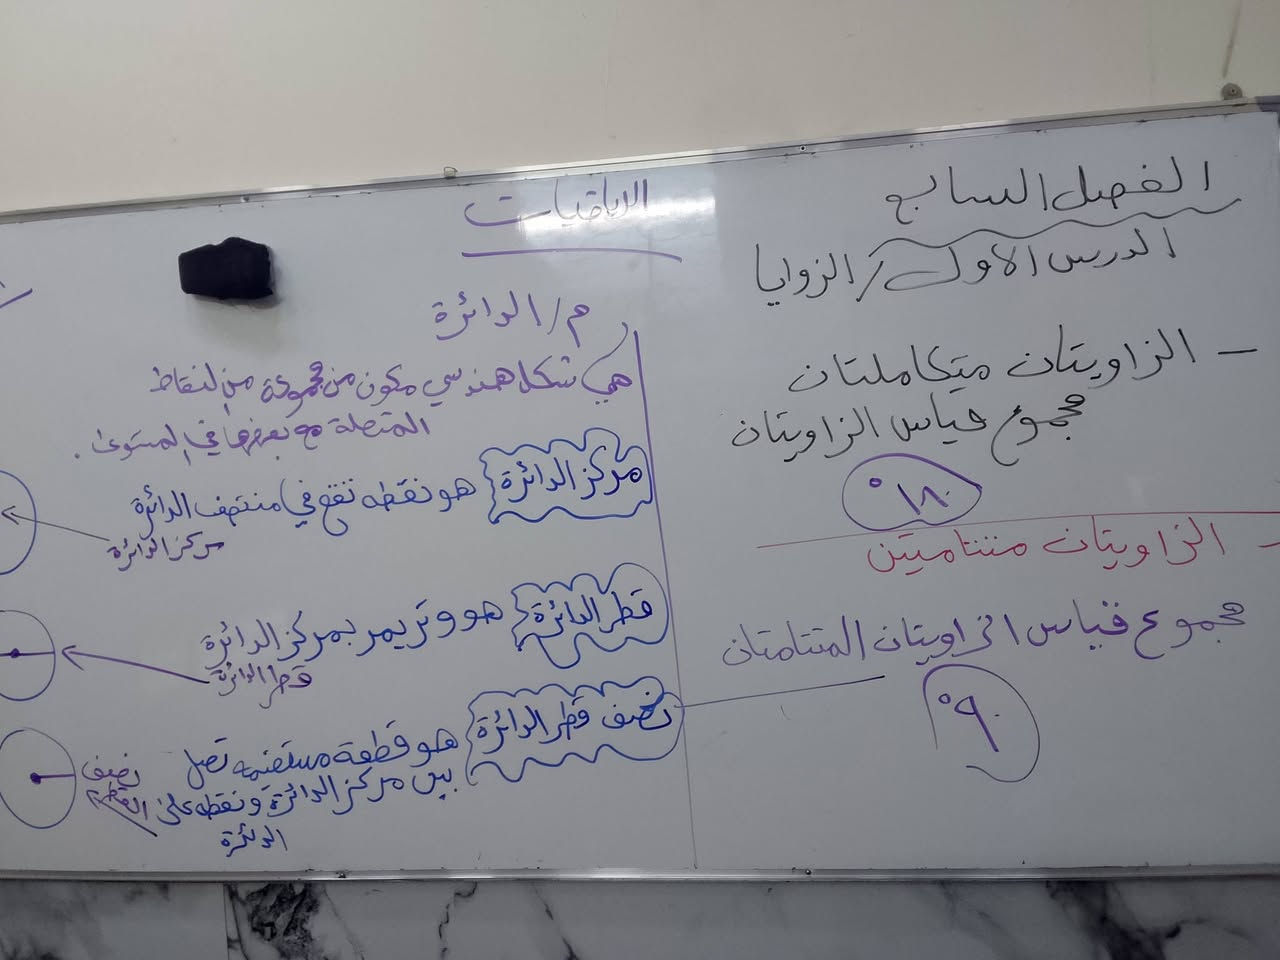 الفصل السابع
الدرس الاول / الزوايا
- الزاويتان متكاملتان
مجموع قياس الزاويتان
١٨٠°
- الزاويتان متتاميتين
مجموع قياس الزاويتان المتتامتان
٩٠°
الرياضيات
م/ الدائرة
هي شكل هندسي مكون من مجموعة من لنقاط
المتصلة مع بعضها في المستوى.
مركز الدائرة هو نقطه تقع في منتصف الدائرة
مركز الدائرة
قطر الدائرة هو وتر يمر بمركز الدائرة
قطر الدائرة
نصف قطر الدائرة هو قطعة مستقيمه تصل
بين مركز الدائرة ونقطه على
الدائرة
نصف
القطر